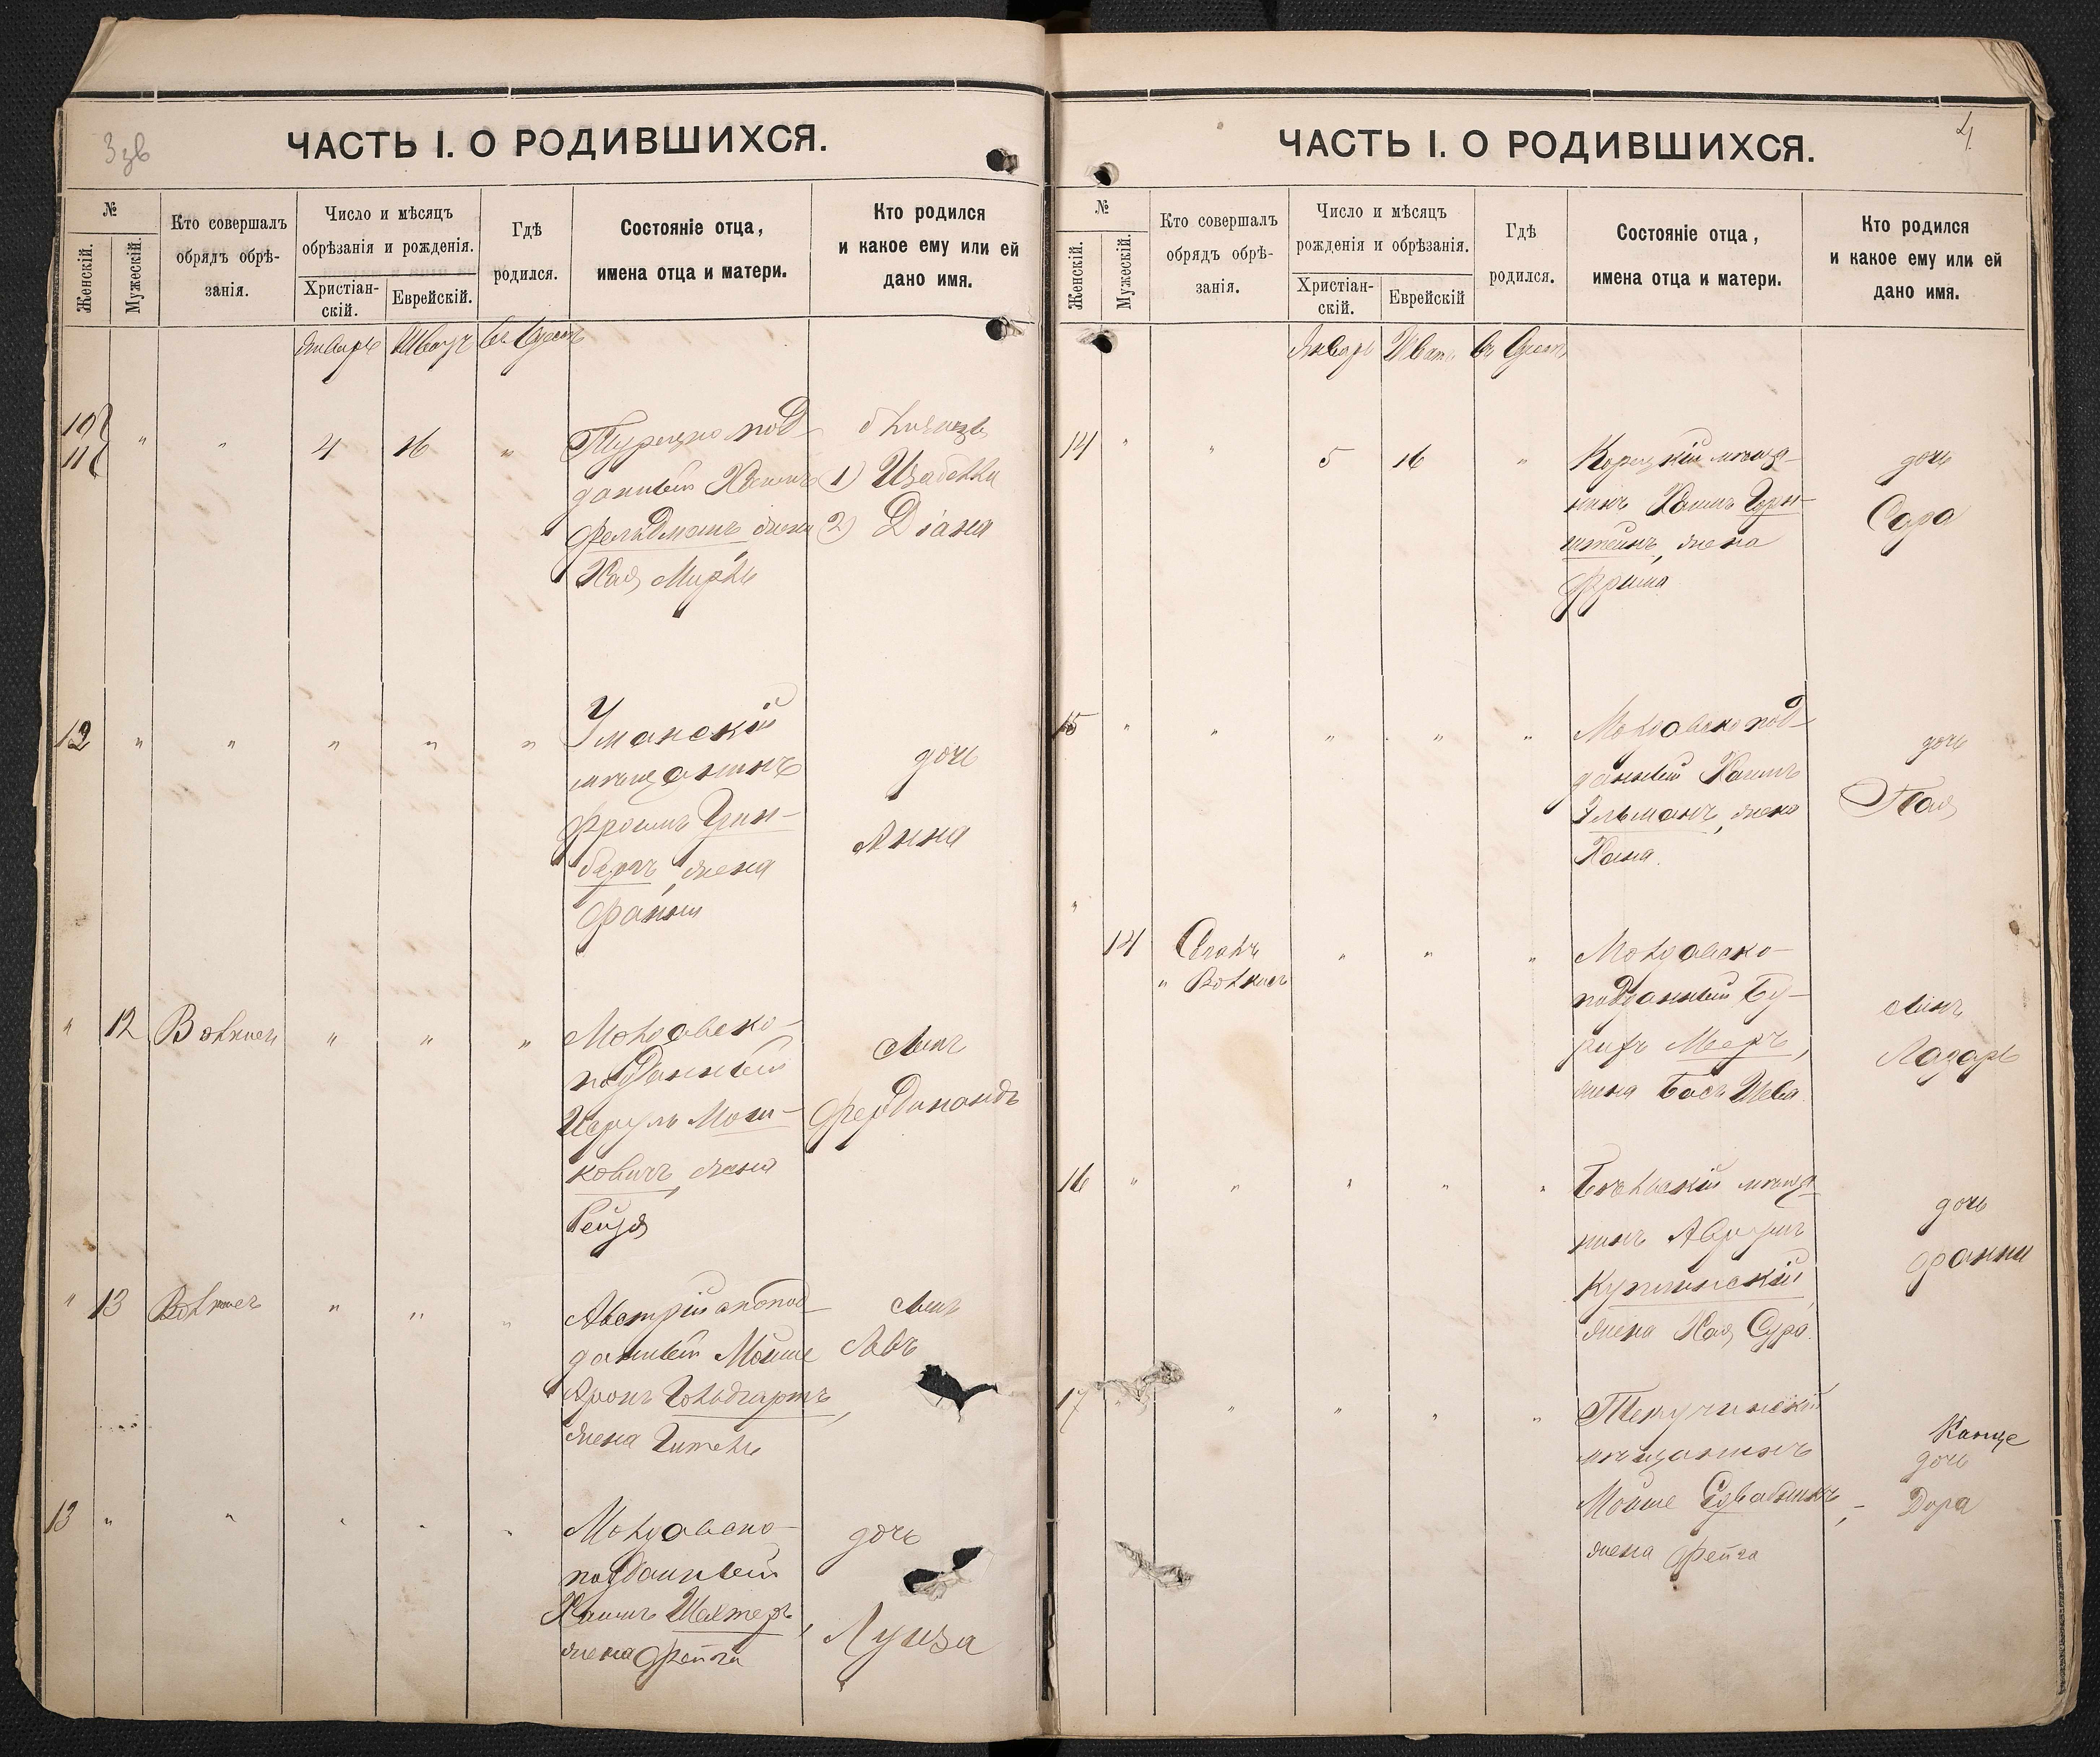 3 зв
ЧАСТЬ I. О РОДИВШИХСЯ.
№
Женскій.
Мужескій.
Кто совершалъ
обрядъ обрѣ-
занія.
Число и мѣсяцъ
обрѣзанія и рожденія.
Христіан-
скій.
Еврейскій.
Гдѣ
родился.
Состояніе отца,
имена отца и матери.
Кто родился
и какое ему или ей
дано имя.
Январь
10
11
4
16
Турецко под-
данный Хаимъ
Фельдманъ жена
Хая Мирль
близнецы
1) Изабелла
2) Діана
12
Уманскій
мѣщанинъ
Фроимъ Грин-
бергъ, жена
Фанни
дочь
Анна
12
Волкисъ
Молдавско-
подданный
Исруль Мош-
ковичъ, жена
Рейзя
сынъ
Фердинандъ
13
Австрійскопод-
данный Мойше
Аронъ Гольдгартъ,
жена Гитель
сынъ
Левъ
13
Молдавско-
подданный
Хаимъ Шехтеръ,
жена Фейга
дочь
Луиза
4.
ЧАСТЬ I. О РОДИВШИХСЯ.
№
Женскій.
Мужескій.
Кто совершалъ
обрядъ обрѣ-
занія.
Число и мѣсяцъ
рожденія и обрѣзанія.
Христіан-
скій.
Еврейскій
Гдѣ
родился.
Состояніе отца,
имена отца и матери.
Кто родился
и какое ему или ей
дано имя.
Январь
14
5
16
Корецкій мѣща-
нинъ Хаимъ Горн-
штейнъ, жена
Фрима
дочь
Сара
15
Молдавско под-
данный Хаимъ
Эльманъ, жена
Хана.
дочь
Пая
14
Молдавско-
подданный Бу-
рихъ Мееръ,
жена Бася Шева.
сынъ
Лазарь
16
Бѣльскій мѣща-
нинъ Аврумъ
жена Хая Сура.
дочь
Фанни
17
мѣщанинъ
Мойше
жена Фейга
дочь
Дора